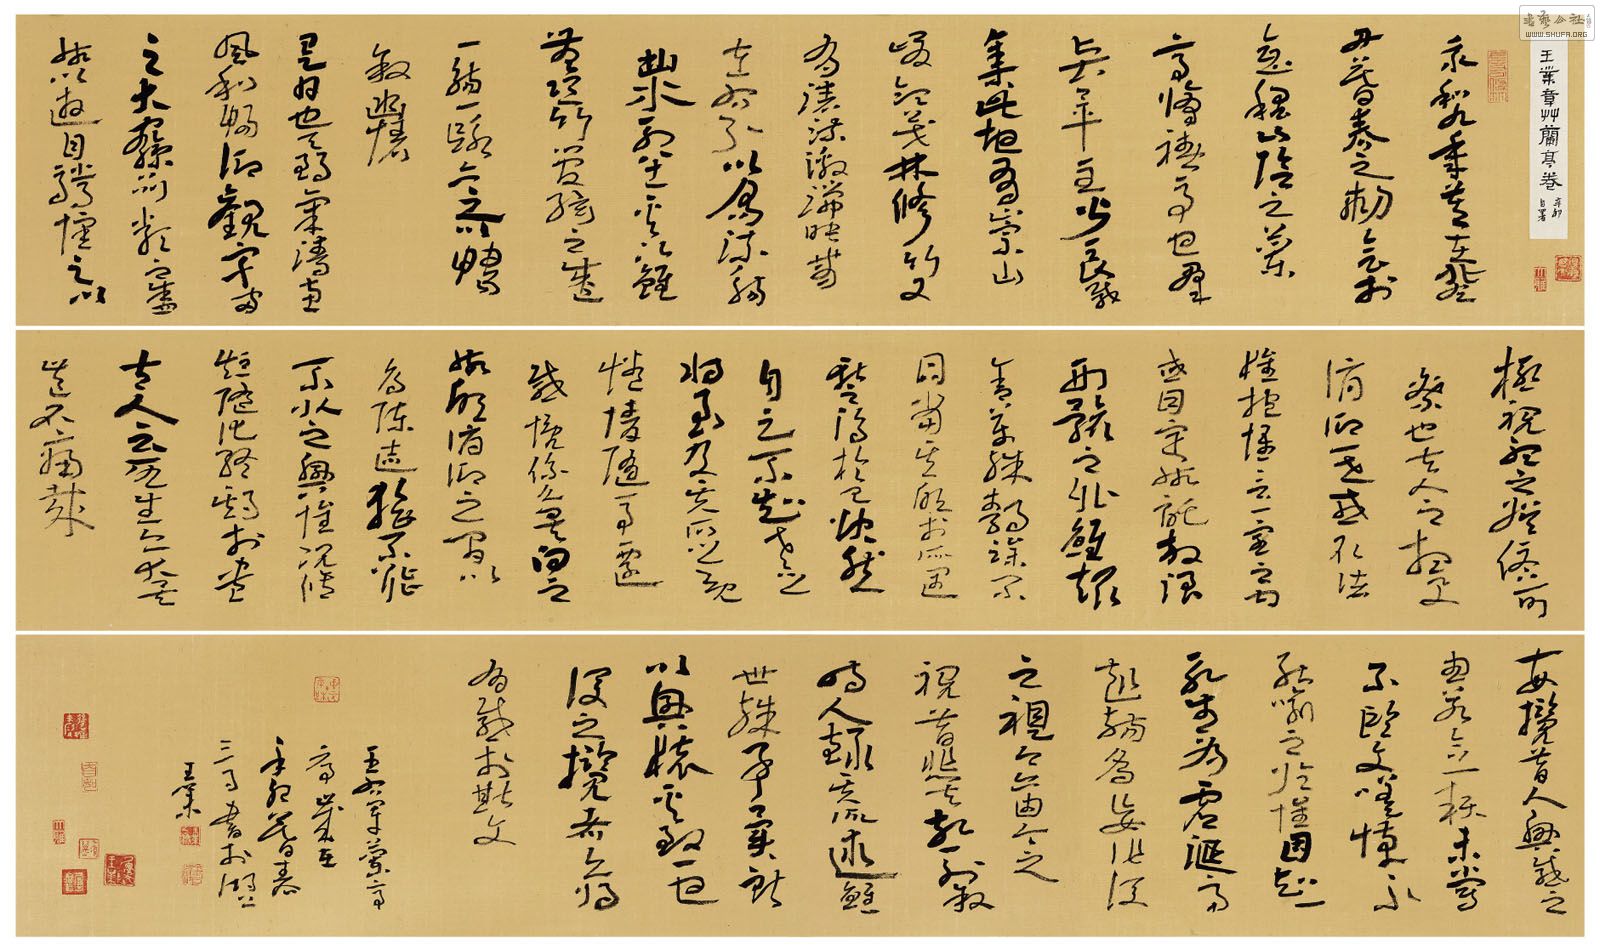 王業章艸蘭亭卷
辛卯
自署
永和九年歲在癸
丑暮春之初會於
會稽山陰之蘭
亭脩禊事也群
賢畢至少長咸
集此地有崇山
峻領茂林修竹又
有清流激湍映帶
左右引以為流觴
曲水列坐其次雖
無絲竹管絃之盛
一觴一詠亦足以暢
敘幽情
是日也天朗氣清惠
風和暢仰觀宇宙
之大俯察品類之盛
所以遊目騁懷足以
極視聽之娛信可
樂也夫人之相與
俯仰一世或取諸
懷抱悟言一室之內
或因寄所託放浪
形骸之外雖趣
舍萬殊靜躁不
同當其欣於所遇
暫得於己快然
自足不知老之
將至及其所之既
惓情隨事遷
感慨係之矣向之
所欣俯仰之間以
為陳迹猶不能
不以之興懷況脩
短隨化終期於盡
古人云死生亦大矣
豈不痛哉
每攬昔人興感之
由若合一契未嘗
不臨文嗟悼不
能喻之於懷固知一
死生為虛誕齊
彭殤為妄作後
之視今亦由今之
視昔悲夫故列敘
時人錄其所述雖
世殊事異所
以興懷其致一也
後之攬者亦將
有感於斯文
王右軍蘭亭
序歲在
辛卯暮春
三日書於湖上
王業
WWW.SHUFA.ORG